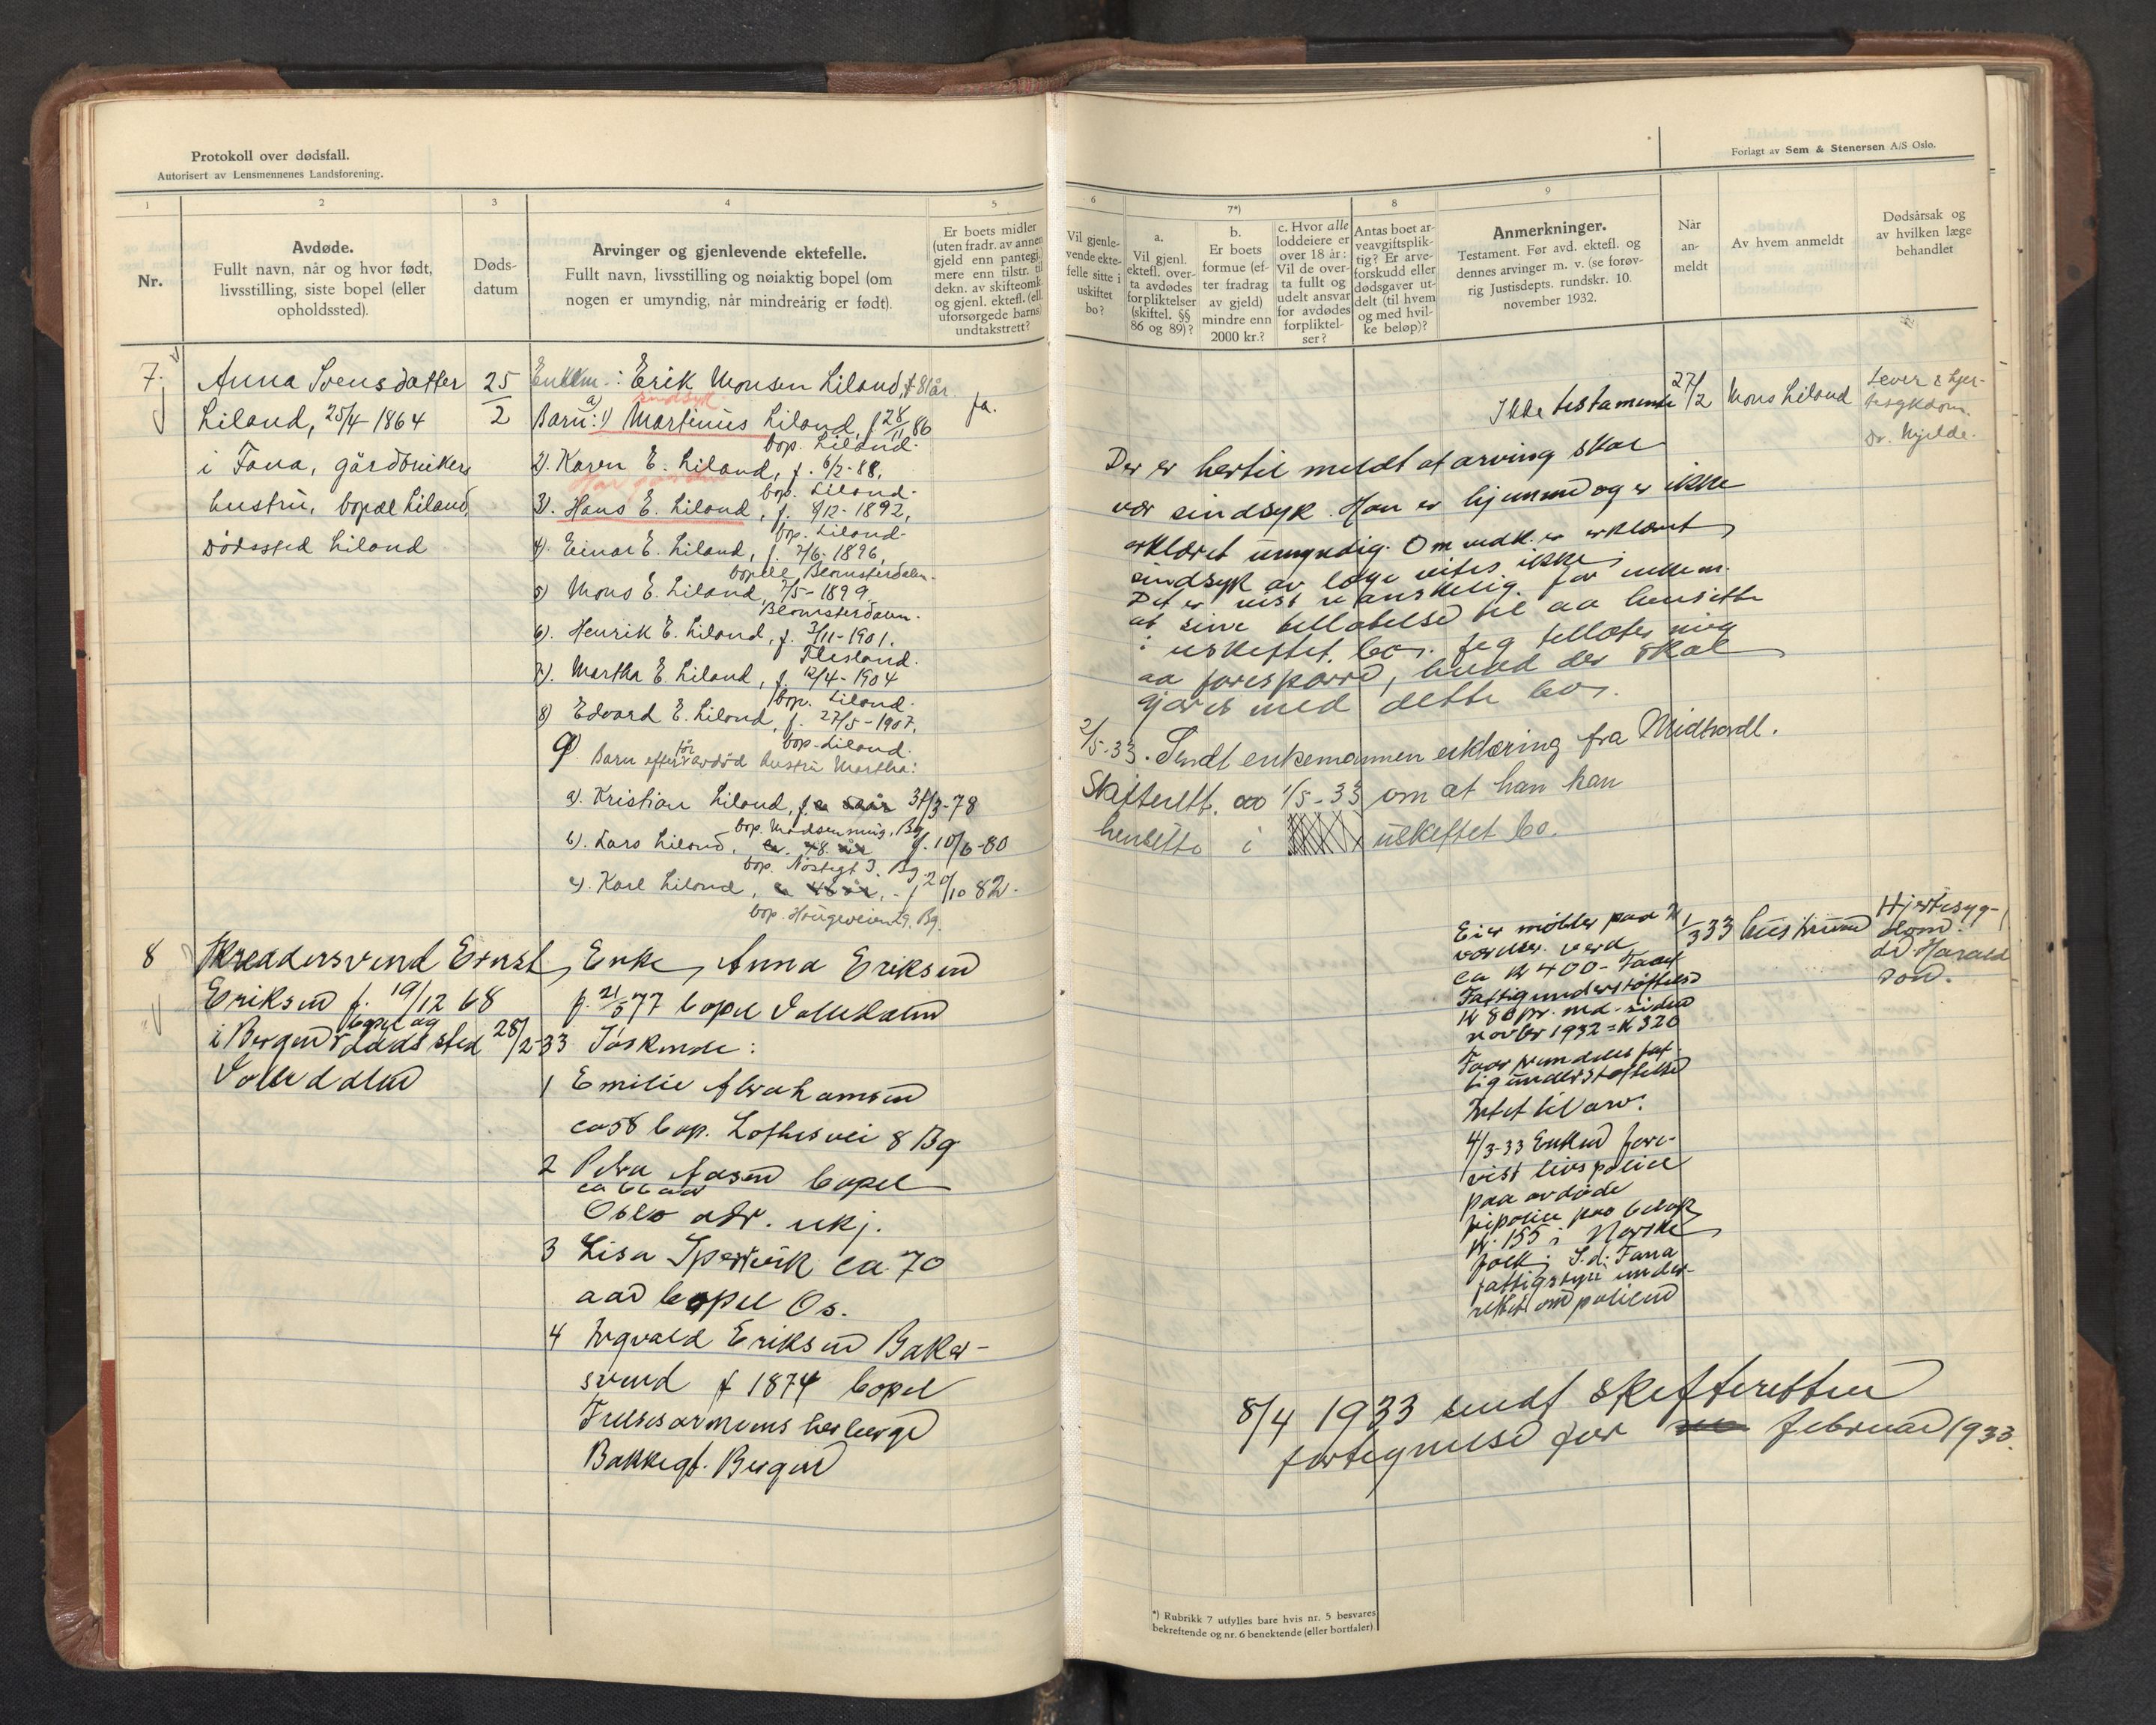 Protokoll over dødsfall.
Autorisert av Lensmennenes Landsforening.
1
2
3
4
5
Nr.
Avdøde.
Fullt navn, når og hvor født,
livsstilling, siste bopel (eller
opholdssted).
Døds-
datum
Arvinger og gjenlevende ektefelle.
Fullt navn, livsstilling og nøiaktig bopel (om
nogen er umyndig, når mindreårig er født).
Er boets midler
(uten fradr. av annen
gjeld enn pantegj.
mere enn tilstr. til
dekn. av skifteomk.
og gjenl. ektef. (ell.
uforsørgede barns)
undtakstrett?
7.
Anna Svensdatter
Liland, 25/4 1864
i Fana, gårdbrukers
hustru, bopæl Liland,
Dødssted Liland
25
2
Enkem.: Erik Monsen Liland, f. 81 år.
sindsyk
Barn: a) 1) Martinus Liland, f. 28/11 86
bop. Liland.
2). Karen E. Liland, f. 6/2-88,
bop. Liland.
3). Hans E. Liland, f. 9/12-1892,
bop. Liland.
4). Einar E. Liland, f. 7/6-1896,
bopæl Blomsterdalen.
5) Mons E. Liland, 7/5-1899.
Blomsterdalen.
6). Henrik E. Liland, f. 3/11-1901.
Flesland.
7). Martha E Liland, f. 12/4-1904
bop. Liland.
8) Edvard E. Liland, f. 27/5-1907,
bop. Liland.
9. Barn efter før avdød hustru Martha:
a). Kristian Liland, 31/3-78
bop. Bg.
b). Lars Liland, ca. 48 år f. 10/6-80
bop. Nøstegt 3. Bg.
c). Karl Liland, f 20/10 82.
bop. Haugeveien Bg.
ja.
8
Skreddersvend Ernst
Eriksen f. 19/12 68
i Bergen bopel og dødssted
28/2-33
Enke, Anna Eriksen
f. 21/5 77 bopel
Søskende:
1 Emilie Abrahamsen
ca 58 bop. Lothesvei 8 Bg
2 Petra Aasen bopel
ca 66 aar
Oslo adr. ukj.
3 Lisa ca. 70
aar bopel Os.
4 Ingvald Eriksen Baker-
svend f 1874 bopel
Frelsesarmeens herberge
Bakkegt. Bergen
Forlagt av Sem & Stenersen A/S Oslo.
6
7*)
8
9
Vil gjenle-
vende ekte-
felle sitte i
uskiftet
bo?
a.
Vil gjenl.
ektefl. over-
ta avdødes
forpliktelser
(skiftel. §§
86 og 89)?
b.
Er boets
formue (ef-
ter fradrag
av gjeld)
mindre enn
2000 kr.?
c. Hvor alle
loddeiere er
over 18 år:
Vil de over-
ta fullt og
udelt ansvar
for avdødes
forpliktel-
ser?
Antas boet ar-
veavgiftsplik-
tig? Er arve-
forskudd eller
dødsgaver ut-
delt (til hvem
og med hvil-
ke beløp)?
Anmerkninger.
Testament. Før avd. ektefl. og
dennes arvinger m. v. (se forøv-
rig Justisdepts. rundskr. 10.
november 1932.
Når
an-
meldt
Av hvem anmeldt
Dødsårsak og
av hvilken læge
behandlet
Ikke testamente
27/2
Mons Liland
Lever & hjer-
tesykdom.
Dr. Kjelde.
Der er hertil meldt at arving skal
vær sindsyk. Han er hjemme og er ikke
erklæret umyndig. Om vedk. er erklært
sindsyk av læge vites ikke.
Det er vist vanskelig for enkem.
at sine tillatelse til aa hensitte
i uskiftet bo. Jeg tillater mig
aa forespørre, hvad der skal
gjøres med dette bo.
2/5-33. Sendt enkemannen erklæring fra Midthordl.
Skifterett. av 1/5-33 om at han kan
hensitte i uskiftet bo.
Eier møbler paa
værelser verd
ca kr 400- Faaet
Fattigunderstøttelse
kr 80 pr. md. siden
novbr 1932 = kr 320
Faar fremdeles fat-
tigunderstøttelse
Intet til arv.
4/3-33 Enken fore-
vist livspolice
paa avdøde
fripolice paa beløp
kr. 155 i Norske
folk. S.d. Fana
fattigstyre under-
rettet om policen
1/3 33
hustruen
Hjertesyg-
dom.
dr. Harald-
son.
8/4 1933 sendt skifteretten
fortegnelse for februar 1933.
*) Rubrikk 7 utfylles bare hvis nr. 5 besvares
bekreftende og nr. 6 benektende (eller bortfaler).